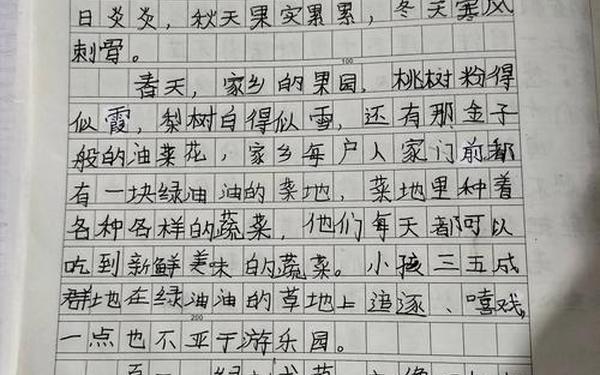 日炎炎，秋天果实累累，冬天寒风
刺骨。
100
春天，家乡的果园，桃树粉得
似霞，梨树白得似雪，还有那金子
般的油菜花，家乡每户人家门前都
有一块绿油油的菜地，菜地里种着
各种各样的蔬菜，他们每天都可以
吃到新鲜美味的蔬菜。小孩三五成
群地在绿油油的草地上追逐、嘻戏，
200
一点也不亚于游乐园。